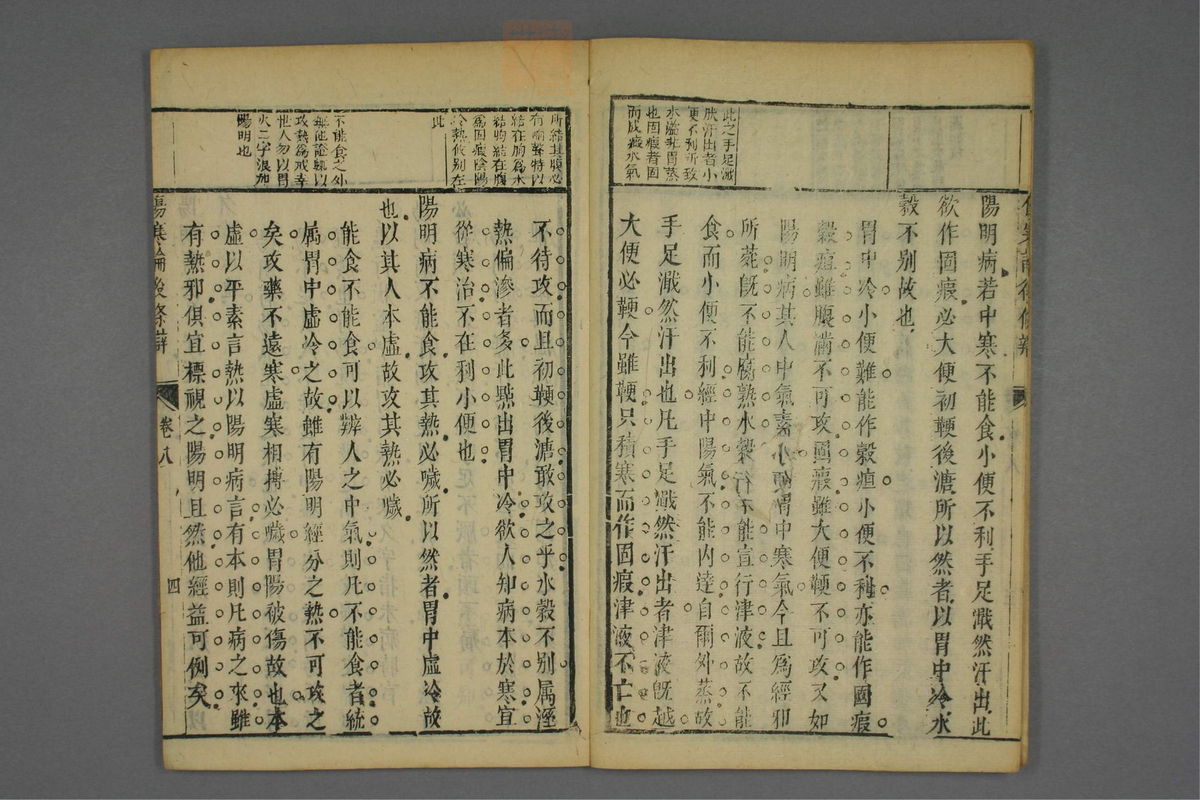 此之手足濈
然汗出者小
便不利所致
水溢非胃蒸
也固瘕者固
而成癥水氣
陽明病若中寒不能食小便不利手足濈然汗出此
欲作固瘕必大便初鞕後溏所以然者以胃中冷水
穀不别故也
胃中冷小便難能作穀疸小便不利亦能作固瘕
穀疸雖腹滿不可攻固瘕雖大便鞕不可攻又如
陽明病其人中氣素小兼胃中寒氣今且爲經邪
所薨旣不能腐熟水穀行不能宣行津液故不能
食而小便不利經中陽氣不能内達自爾外蒸故
手足濈然汗出也凡手足濈然汗出者津液旣越
大便必鞕今雖鞕只積寒而作固瘕津液不亡也
所結其腹必
有响聲特以
結在胸爲水
結胸結在腹
爲固瘕陰陽
冷熱攸别在
此
不能食之外
無他證輒以
攻熱爲戒幸
世人勿以胃
火二字混加
陽明也
不待攻而且初鞕後溏敢攻之乎水穀不别属溼
熱偏滲者多此點出胃中冷欲人知病本於寒宜
從寒治不在利小便也
陽明病不能食攻其熱必噦所以然者胃中虛冷故
也以其人本虛故攻其熱必噦
能食不能食可以辨人之中氣則凡不能食者統
属胃中虛冷之故雖有陽明經分之熱不可攻之
矣攻藥不遠寒虛寒相搏必噦胃陽被傷故也本
虛以平素言熱以陽明病言有本則凡病之來雖
有熱邪俱宜標視之陽明且然他經益可例矣
傷寒論後條辯
卷八
四